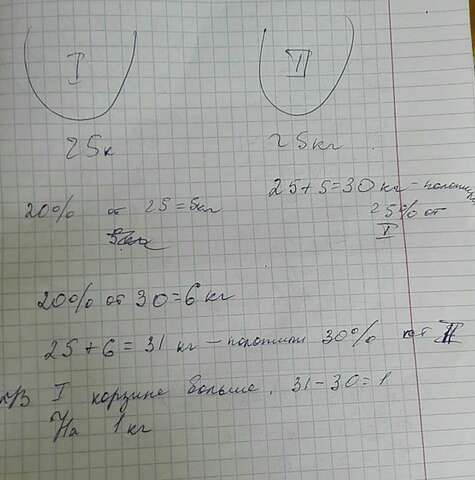 I II
25к 25кг
25+5=30 кг - положили
20% от 25=5кг 25% от
I
20% от 30=6 кг
25+6=31 кг - положили 30% от II
В I корзине больше, 31-30=1
На 1 кг